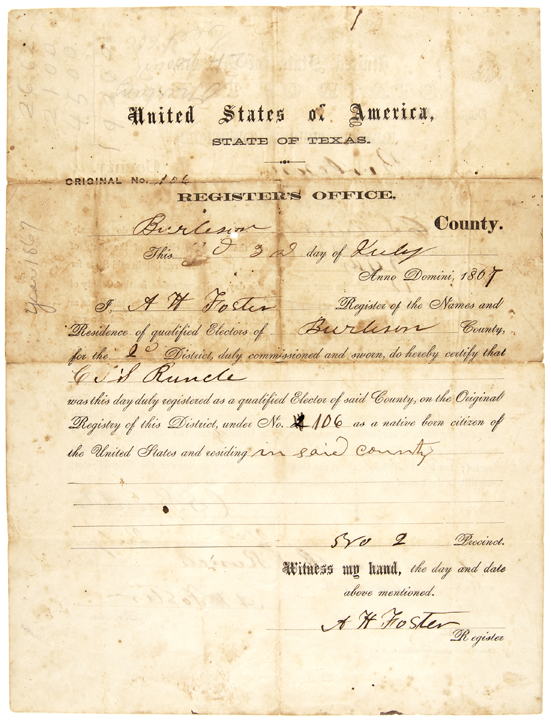 United States of America,
STATE OF TEXAS.
ORIGINAL No. 106
REGISTER'S OFFICE,
Burleson County.
This 3d day of July
Anno Domini, 1867
I, A H Foster Register of the Names and
Residence of qualified Electors of Burleson County,
for the 2d District, duly commissioned and sworn, do hereby certify that
Runcle
was this day duly registered as a qualified Elector of said County, on the Original
Registry of this District, under No. 106 as a native born citizen of
the United States and residing in said county
No 2 Precinct.
Witness my hand, the day and date
above mentioned.
A H Foster
Register
Year 1867